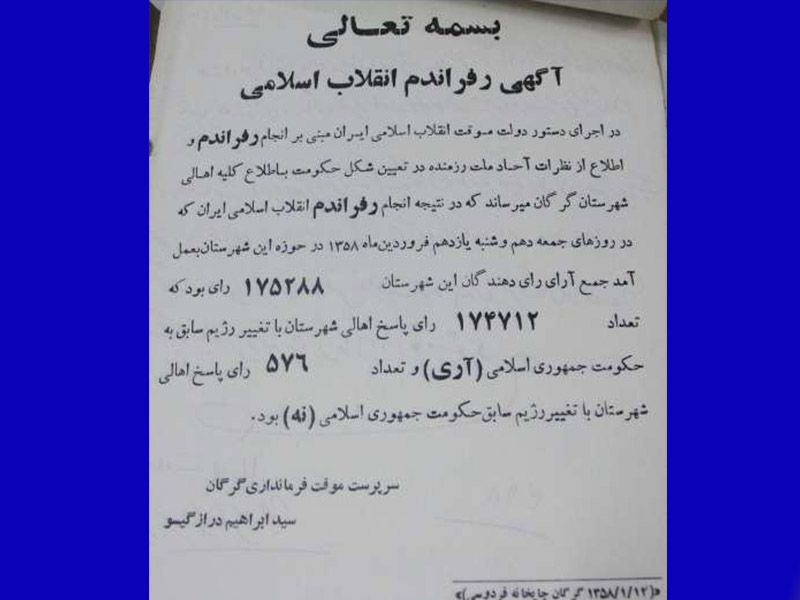 بسمه تعالی
آگهی رفراندم انقلاب اسلامی
در اجرای دستور دولت موقت انقلاب اسلامی ایران مبنی بر انجام رفراندم و
اطلاع از نظرات آحاد ملت رزمنده در تعیین شکل حکومت باطلاع کلیه اهالی
شهرستان گرگان میرساند که در نتیجه انجام رفراندم انقلاب اسلامی ایران که
در روزهای جمعه دهم و شنبه یازدهم فروردین‌ماه ۱۳۵۸ در حوزه این شهرستان بعمل
آمد جمع آرای رای دهندگان این شهرستان ۱۷۵۲۸۸ رای بود که
تعداد ۱۷۴۷۱۲ رای پاسخ اهالی شهرستان با تغییر رژیم سابق به
حکومت جمهوری اسلامی (آری) و تعداد ۵۷۶ رای پاسخ اهالی
شهرستان با تغییر رژیم سابق حکومت جمهوری اسلامی (نه) بود.
سرپرست موقت فرمانداری گرگان
سید ابراهیم درازگیسو
«(۱۳۵۸/۱/۱۲ گرگان چاپخانه فردوسی)»